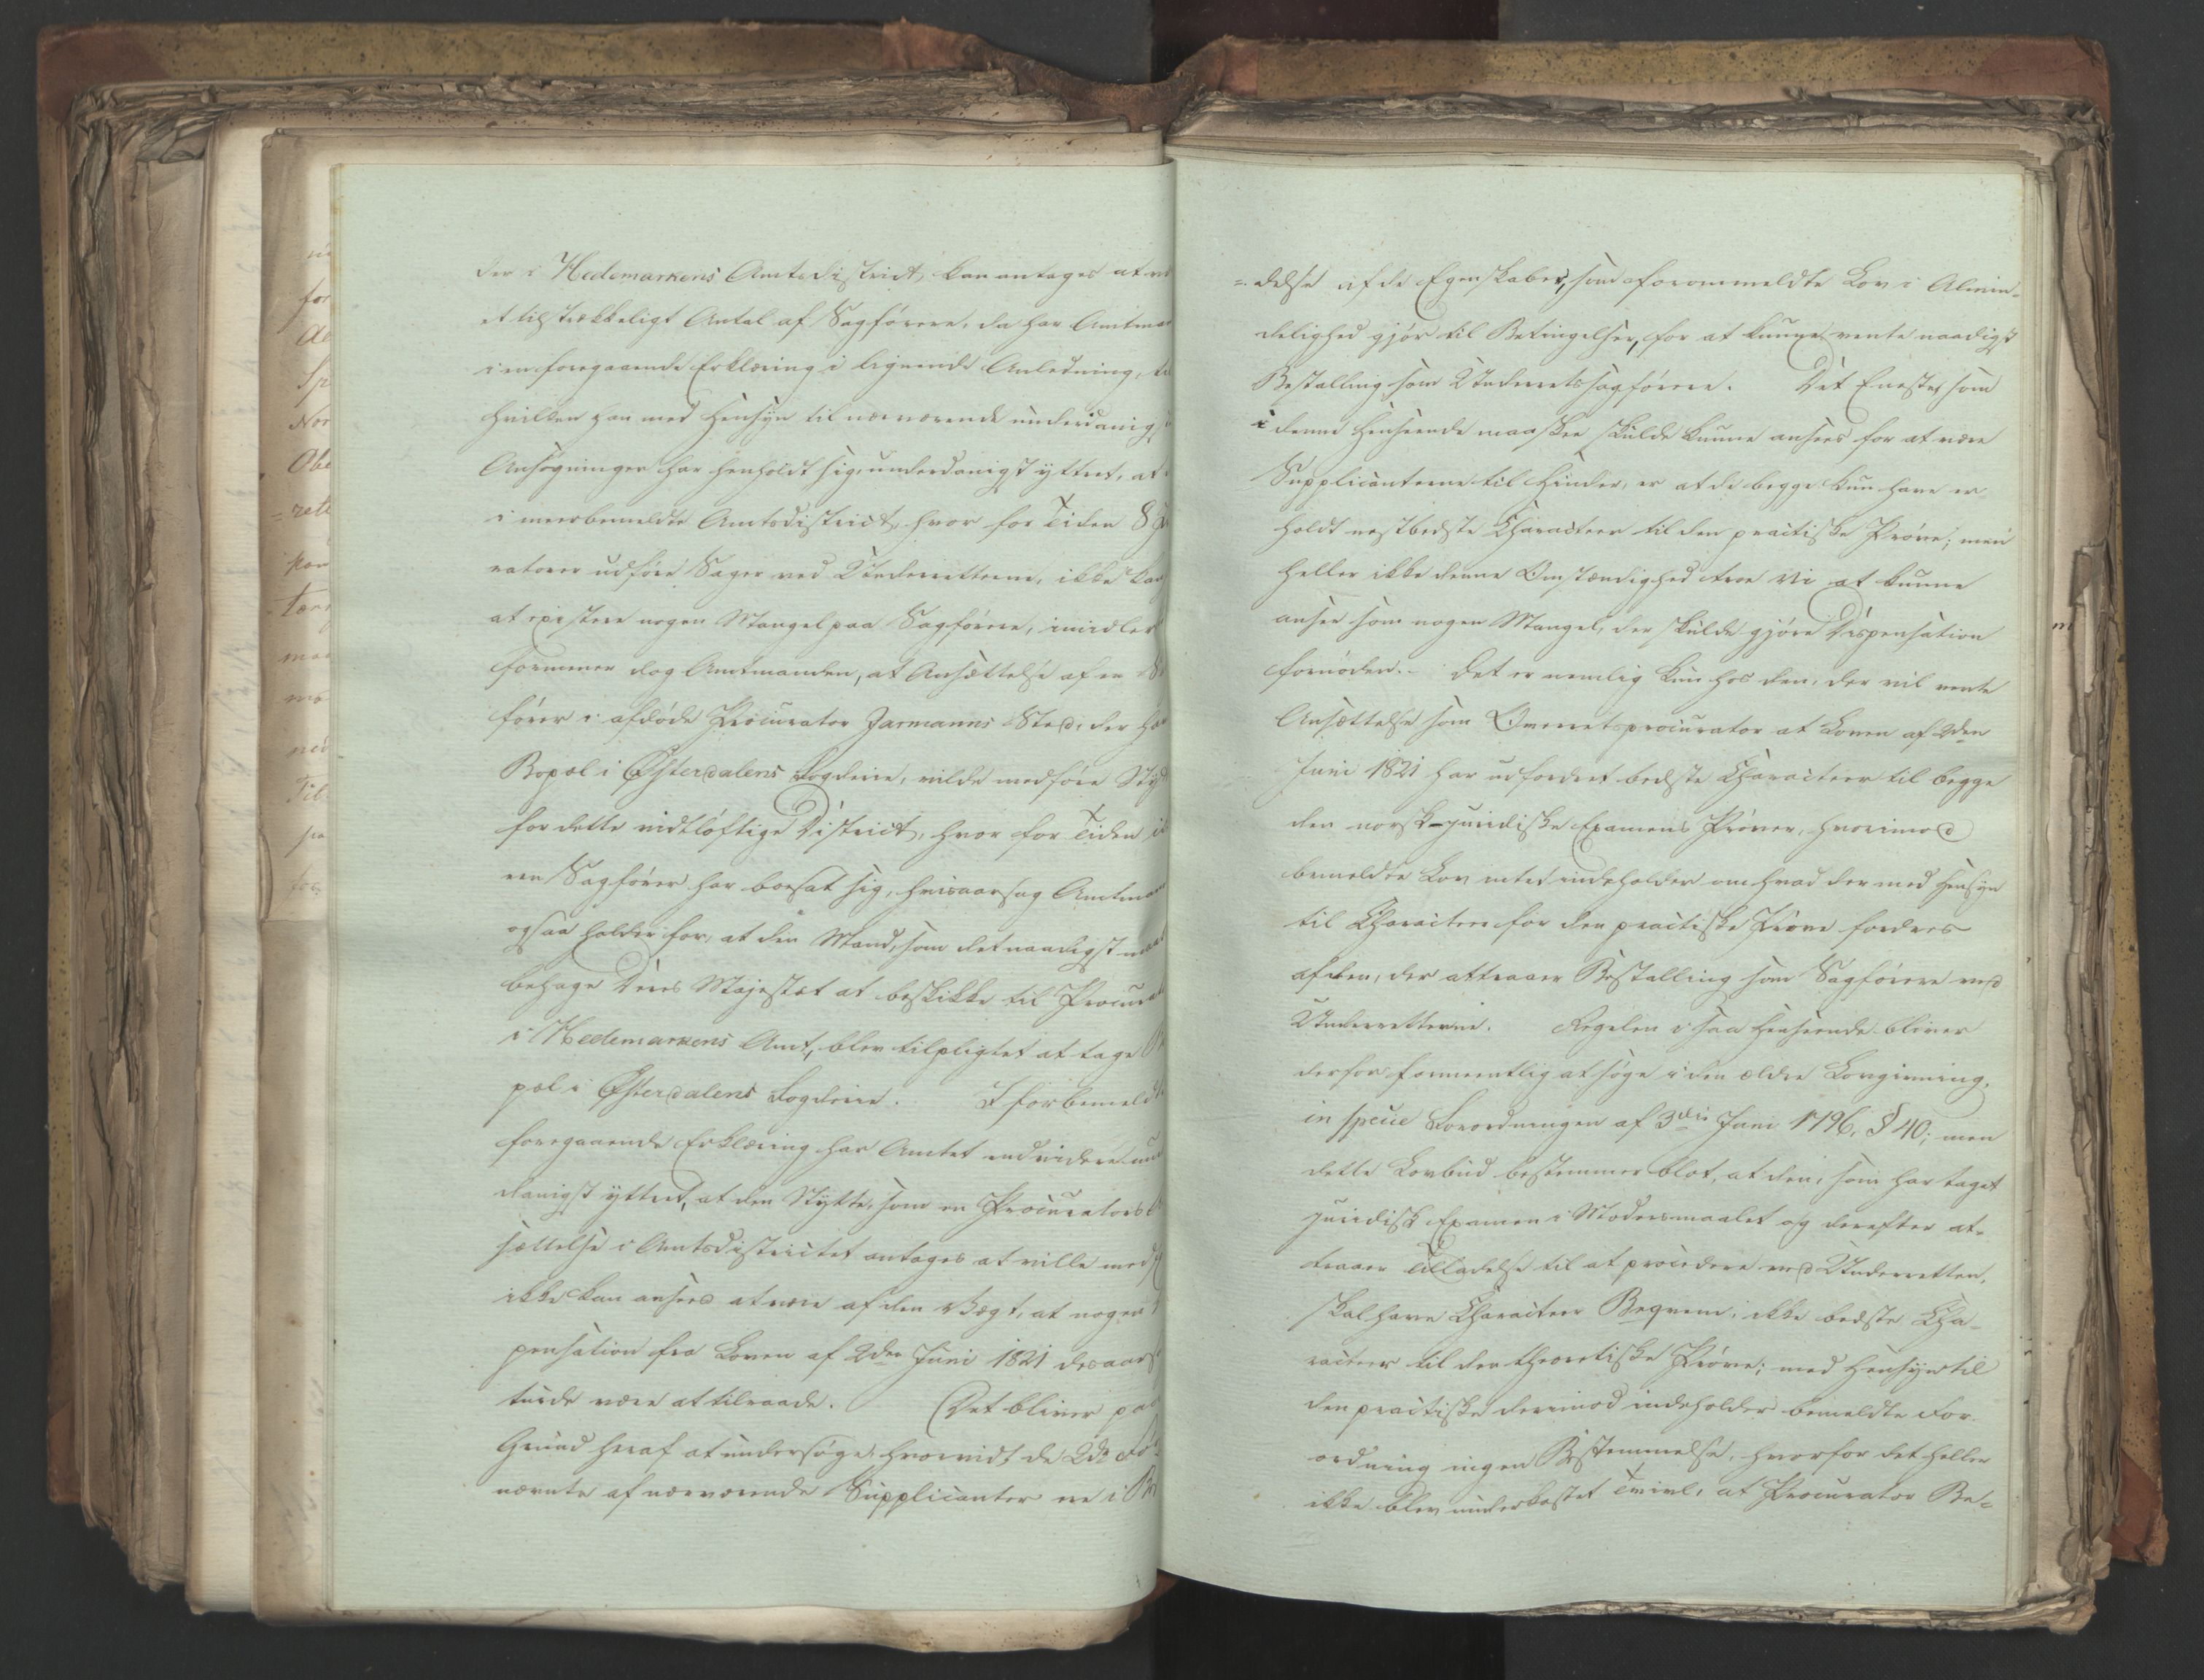 der i Hedemarkens Amtsdistrict, kan antages at
et tilstrækkeligt Antal af Sagførere, da har Amtma
i en foregaaende Erklæring i lignende Anledning, til
hvilken han med Hensyn til nærværende underdanig
Ansøgninger har henholdt sig, underdanigst yttret, at
i meerbemeldte Amtsdistrict, hvor for Tiden 8
ratorer udføre Sager ved Underretterne, ikke kan
at existere nogen Mangel paa Sagførere, imidler
formener dog Amtmanden, at Ansættelse af en
fører i afdøde Procurator Jarmanns Sted, der
Bopæl i Østerdalens Fogderie, vilde medføre Nytt
for dette vidtløftige District, hvor for Tiden
een Sagfører har bosat sig, hvisaarsag Amtm
ogsaa holder for, at den Mand, som det naadigst
behage Deres Majestæt at beskikke til Procura
i Hedemarkens Amt, blev tilpligtet at tage
pæl i Østerdalens Fogderie. I forbemeldte
foregaaende Erklæring har Amtet endvidere
danigst yttret, at den Nytte, som en Procurators
sættelse i Amtsdistrictet antages at ville med
ikke kan ansees at være af den Vægt, at nogen
pensation fra Loven af 2den Juni 1821 desaars
turde være at tilraade. Det bliver paa
Grund heraf at undersøge, hvorvidt de 2de
nævnte af nærværende Supplicanter ere i
delse af de Egenskaber, som forommeldte Lov i Almin-
delighed gjør til Betingelser, for at kunne vente naadigst
Bestalling som Underretssagførere. Det Eneste, som
i denne Henseende maaskee skulde kunne ansees for at være
Supplicanterne til Hinder, er at de begge kun have er-
holdt næstbedste Characteer til den practiske Prøve; men
heller ikke denne Omstændighed troe Vi at kunne
ansee som nogen Mangel, der skulde gjøre Dispensation
fornøden. Det er nemlig kun hos den, der vil vente
Ansættelse som Overretsprocurator at Loven af 2den
Juni 1821 har udfordret bedste Characteer til begge
den norsk-juridiske Examens Prøver, hvorimod
bemeldte Lov intet indeholder om hvad der med Hensyn
til Characteer for den practiske Prøve fordres
af den, der attraaer Bestalling som Sagfører ved
Underretterne. Regelen i saa Henseende bliver
derfor formeentlig at søge i den ældre Lovgivning,
in specie Forordningen af 3die Juni 1796, § 40; men
dette Lovbud bestemmer blot, at den, som har taget
juridisk Examen i Modersmaalet og derefter at-
traaer Tilladelse til at procedere ved Underretten,
skal have Characteer Beqvem, ikke bedste Cha-
racteer til den theoretiske Prøve; med Hensyn til
den practiske derimod indeholder bemeldte For-
ordning ingen Bestemmelse, hvorfor det heller
ikke blev underkastet Tvivl, at Procurator Be-